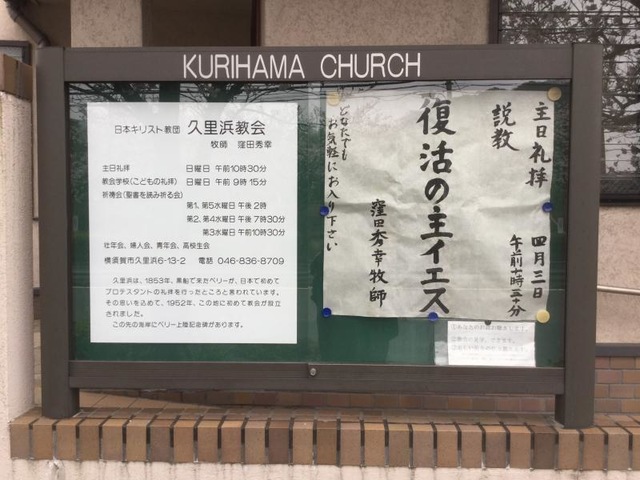 KURIHAMA CHURCH
日本キリスト教団 久里浜教会
牧師 窪田秀幸
主日礼拝 日曜日 午前10時30分
教会学校(こどもの礼拝) 日曜日 午前 9時 15分
祈祷会(聖書を読み祈る会)
第1、第5水曜日 午後 2時
第2、第4水曜日 午後 7時30分
第3水曜日 午前10時30分
壮年会、婦人会、青年会、高校生会
横須賀市久里浜6-13-2 電話 046-836-8709
久里浜は、1853年、黒船で来たペリーが、日本で初めて
プロテスタントの礼拝を行ったところと言われています。
その思いを込めて、1952年、この地に初めて教会が設立
されました。
この先の海岸にペリー上陸記念碑があります。
主日礼拝 四月三日
午前十時三十分
説教
復活の主イエス
窪田秀幸牧師
どなたでも
お気軽にお入り下さい